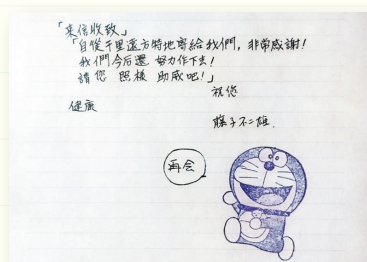 「来信收致」
「自従千里遠方特地寄給我們，非常感謝！
我們今后還 努力作下去！
請您 照様 助威吧！」
祝您
健康
藤子不二雄.
再会